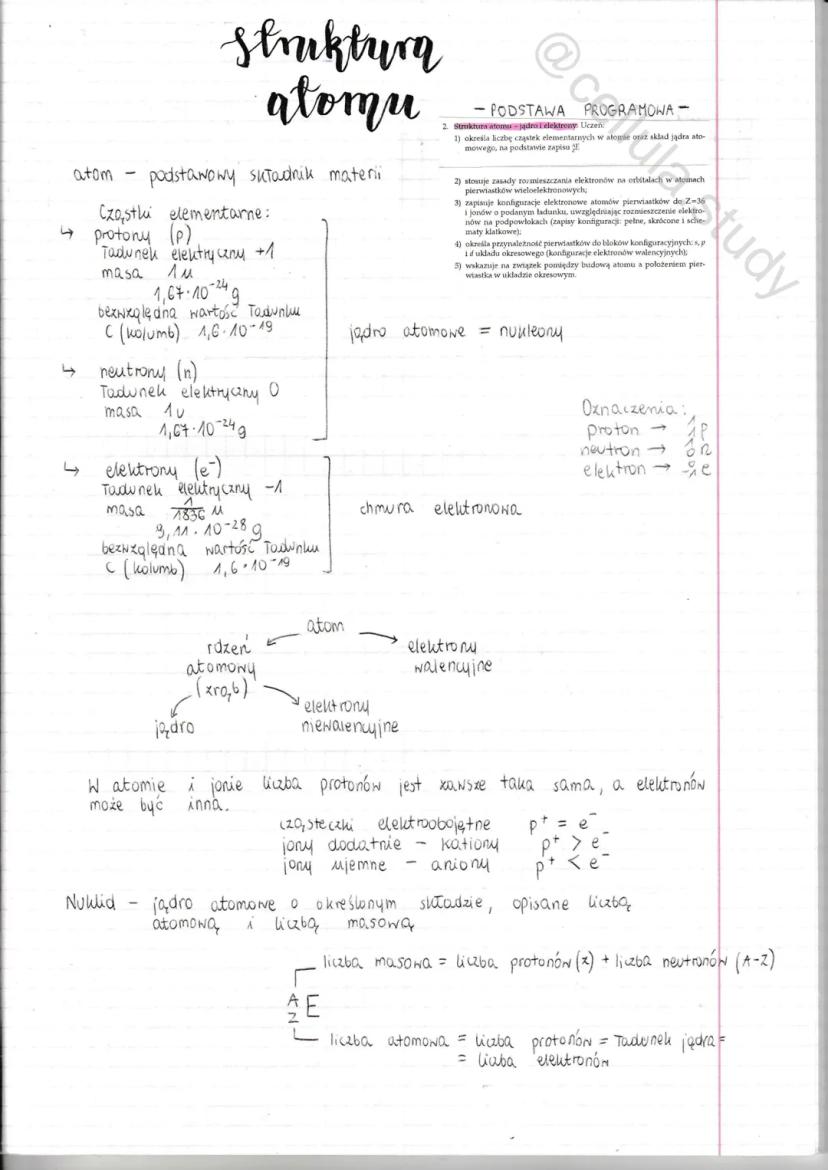 struktura
atomu
@cellula_study
- PODSTAWA PROGRAMOWA -
2. Struktura atomu – jądro i elektrony. Uczeń:
1) określa liczbę cząstek elementarnych w atomie oraz skład jądra ato-
mowego, na podstawie zapisu ᴬ_Z E
2) stosuje zasady rozmieszczania elektronów na orbitalach w atomach
pierwiastków wieloelektronowych;
3) zapisuje konfiguracje elektronowe atomów pierwiastków do Z=36
i jonów o podanym ładunku, uwzględniając rozmieszczenie elektro-
nów na podpowłokach (zapisy konfiguracji: pełne, skrócone i sche-
maty klatkowe);
4) określa przynależność pierwiastków do bloków konfiguracyjnych: s, p
i d układu okresowego (konfiguracje elektronów walencyjnych);
5) wskazuje na związek pomiędzy budową atomu a położeniem pier-
wiastka w układzie okresowym.
atom – podstawowy składnik materii
Cząstki elementarne:
↳ protony (p)
ładunek elektryczny +1
masa 1 u
1,67·10⁻²⁴ g
bezwzględna wartość ładunku
C (kolumb) 1,6·10⁻¹⁹
jądro atomowe = nukleony
↳ neutrony (n)
ładunek elektryczny 0
masa 1 u
1,67·10⁻²⁴ g
Oznaczenia:
proton → ¹₁p
neutron → ¹₀n
elektron → ⁰₋₁e
↳ elektrony (e⁻)
ładunek elektryczny -1
masa 1/1836 u
9,11·10⁻²⁸ g
bezwzględna wartość ładunku
C (kolumb) 1,6·10⁻¹⁹
chmura elektronowa
atom
rdzeń
atomowy
(zrąb)
elektrony
walencyjne
jądro
elektrony
niewalencyjne
W atomie i jonie liczba protonów jest zawsze taka sama, a elektronów
może być inna.
cząsteczki elektroobojętne p⁺ = e⁻
jony dodatnie – kationy p⁺ > e⁻
jony ujemne – aniony p⁺ < e⁻
Nuklid – jądro atomowe o określonym składzie, opisane liczbą
atomową i liczbą masową
liczba masowa = liczba protonów (z) + liczba neutronów (A-Z)
A
Z E
liczba atomowa = liczba protonów = ładunek jądra =
= liczba elektronów